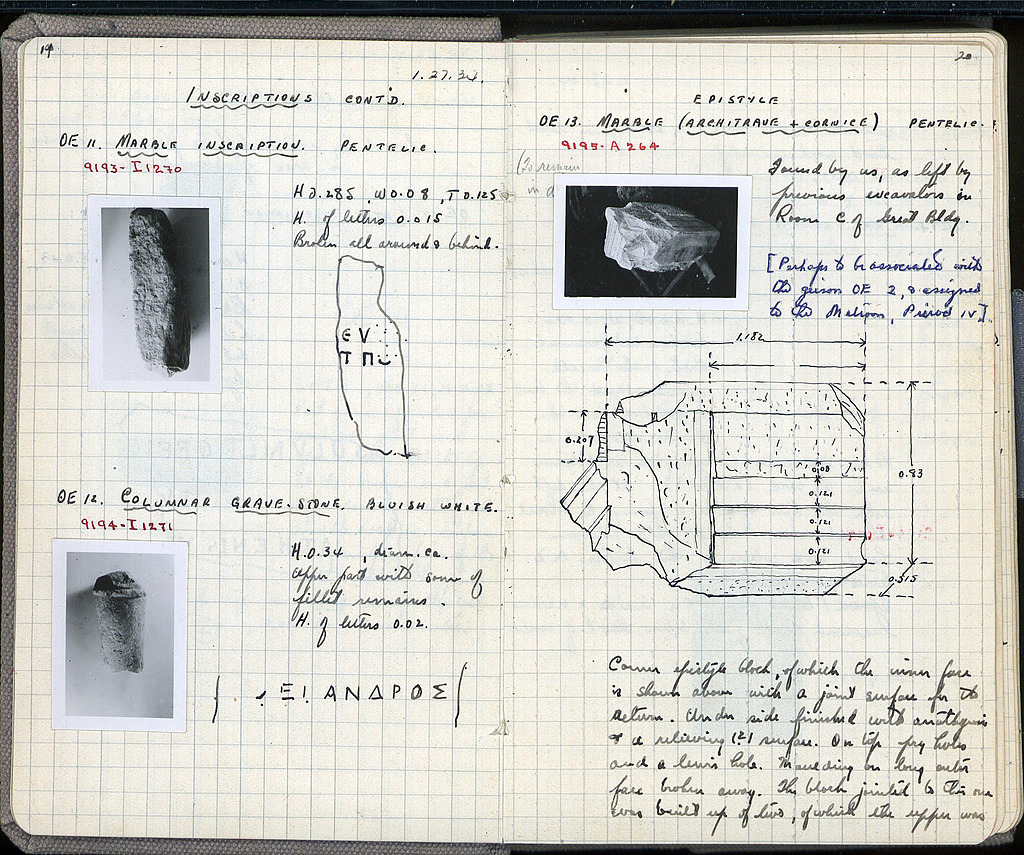 19
1.27.34.
INSCRIPTIONS CONT'D.
ΟΕ 11. MARBLE INSCRIPTION. PENTELIC.
9193 - I 1270
H 0.285, W 0.08, T 0.125
H. of letters 0.015
Broken all around & behind.
Є V
Τ Π
ΟΕ 12. COLUMNAR GRAVE-STONE. BLUISH WHITE.
9194 - I 1271
H. 0.34, diam. ca.
Upper part with some of
fillet remains.
H. of letters 0.02.
Ξ Ι Α Ν Δ Ρ Ο Σ
20
EPISTYLE
ΟΕ 13. MARBLE (ARCHITRAVE + CORNICE) PENTELIC.
9195 - A 264
(To remain
in
Found by us, as left by
previous excavators in
Room C of Great Bldg.
[Perhaps to be associated with
the geison ΟΕ 2, & assigned
to the Metroon, Period IV]
1.182
0.207
0.08
0.121
0.121
0.121
0.83
0.315
Corner epistyle block, of which the inner face
is shown above with a joint surface for the
return. Under side finished with anathyrosis
& a relieving (?) surface. On top pry holes
and a lewis hole. Moulding on long outer
face broken away. The block jointed to this one
was built up of two, of which the upper was